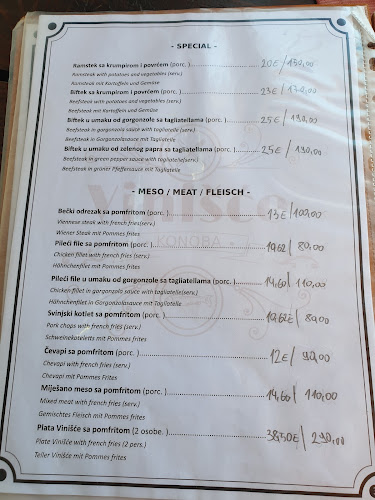 - SPECIAL -
Ramstek sa krumpirom i povrćem (porc. ) 20€ / 150,00
Ramsteak with potatoes and vegetables (serv.)
Ramsteak mit Kartoffeln und Gemüse
Biftek sa krumpirom i povrćem (porc. ) 23€ / 170,00
Beefsteak with potatoes and vegetables (serv.)
Beefsteak mit Kartoffeln und Gemüse
Biftek u umaku od gorgonzole sa tagliatellama (porc. ) 25€ / 190,00
Beefsteak in gorgonzola sauce with tagliatelle (serv.)
Beefsteak in Gorgonzolasauce mit Tagliatelle
Biftek u umaku od zelenog papra sa tagliatellama (porc. ) 25€ / 190,00
Beefsteak in green pepper sauce with tagliatelle(serv.)
Beefsteak in grüner Pfeffersauce mit Tagliatelle
- MESO / MEAT / FLEISCH -
Vinišće
KONOBA
Bečki odrezak sa pomfritom (porc. ) 13€ / 100,00
Viennese steak with french fries(serv.)
Wiener Steak mit Pommes frites
Pileći file sa pomfritom (porc. ) 10,62 / 80,00
Chicken fillet with french fries (serv.)
Hähnchenfilet mit Pommes frites
Pileći file u umaku od gorgonzole sa tagliatellama (porc. ) 14,60 / 110,00
Chicken fillet in gorgonzola sauce with tagliatelle(serv.)
Hähnchenfilet in Gorgonzolasauce mit Tagliatelle
Svinjski kotlet sa pomfritom (porc. ) 10,62€ / 80,00
Pork chops with french fries (serv.)
Schweinekoteletts mit Pommes frites
Ćevapi sa pomfritom (porc. ) 12€ / 90,00
Chevapi with french fries (serv.)
Chevapi mit Pommes Frites
Miješano meso sa pomfritom (porc. ) 14,60 / 110,00
Mixed meat with french fries (serv.)
Gemischtes Fleisch mit Pommes frites
Plata Vinišće sa pomfritom (2 osobe. )
Plate Vinišće with french fries (2 pers.)
Teller Vinišće mit Pommes frites